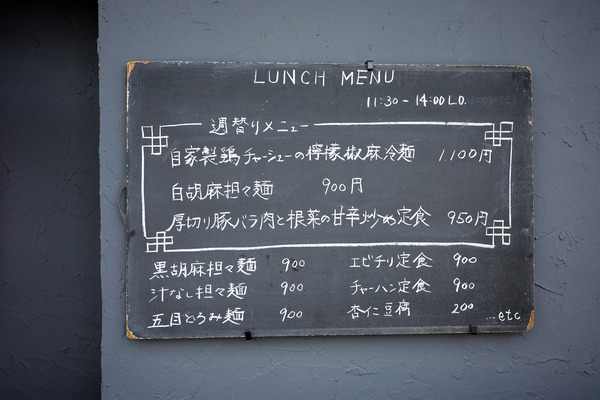 LUNCH MENU
11:30-14:00 L.O.
週替りメニュー
自家製鶏チャーシューの檸檬椒麻冷麺 1,100円
白胡麻担々麺 900円
厚切り豚バラ肉と根菜の甘辛炒め定食 950円
黒胡麻担々麺 900
汁なし担々麺 900
五目とろみ麺 900
エビチリ定食 900
チャーハン定食 900
杏仁豆腐 200
...etc